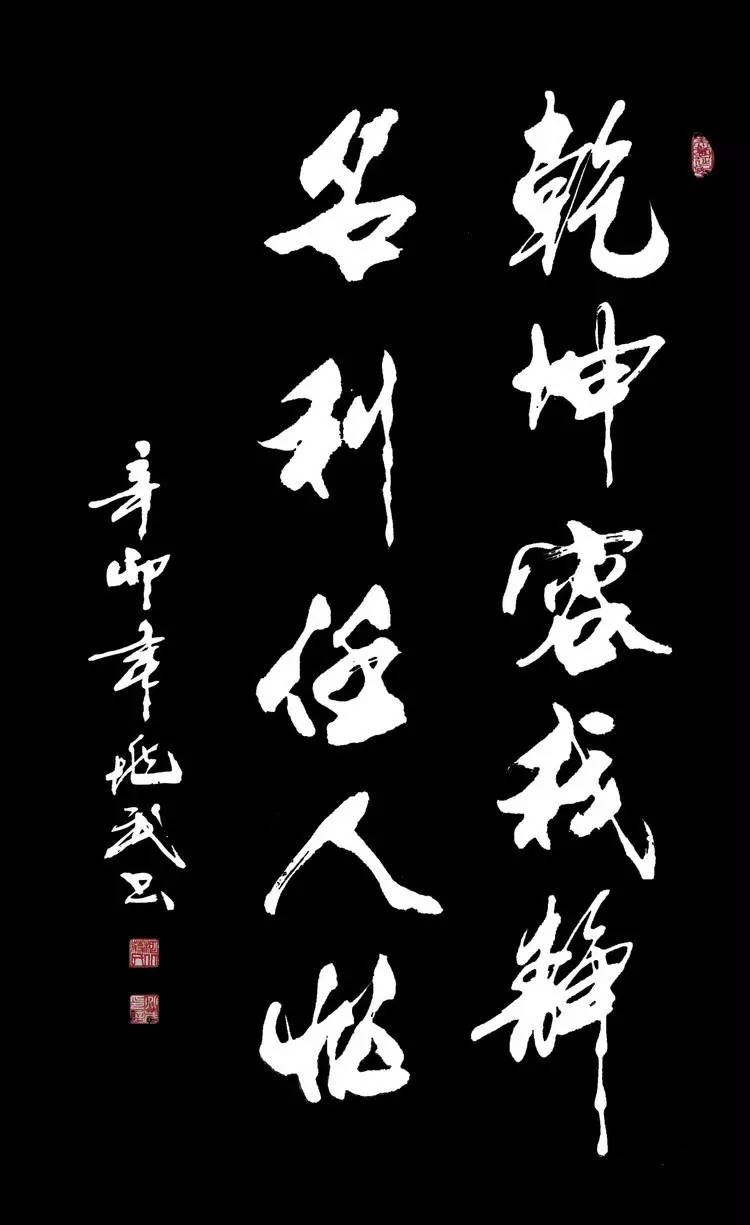 乾坤容我静
名利任人忙
辛卯年 武书